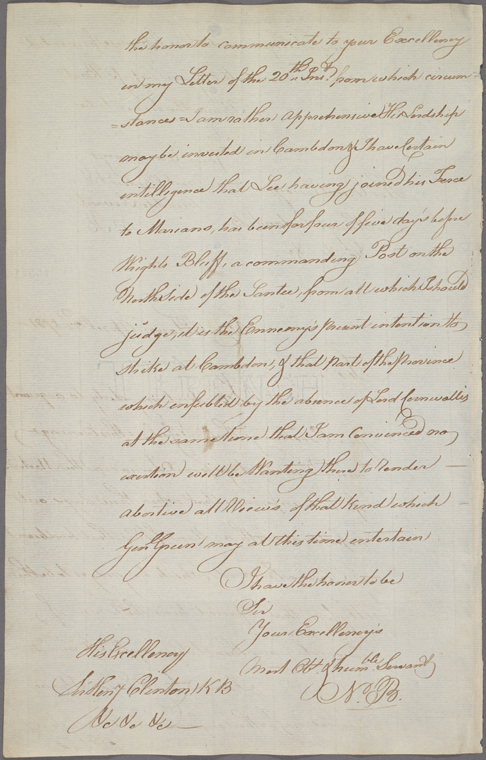 the honor to communicate to your Excellency
in my Letter of the 20th Inst. from which circum-
-stances I am rather apprehensive His Lordship
may be invested in Cambdon, & I have Certain
intelligence that Lee having joined his Force
to Marians, has been for four of five days before
Wrights Bluff, a commanding Post on the
North side of the Santee, from all which I should
judge, it is the Ennemy's present intention to
strike at Cambdon, & that part of the Province
which enfeebled by the absence of Lord Cornwallis
at the same time that I am Convinced no
exertion will be Wanting there to render
abortive all Views of that Kind which
Genl Green may at this time entertain
I have the honor to be
Sir
Your Excellency's
most Obt. & humble Servant
N. B.
His Excellency
Sir Heny Clinton, K B
&c &c &c